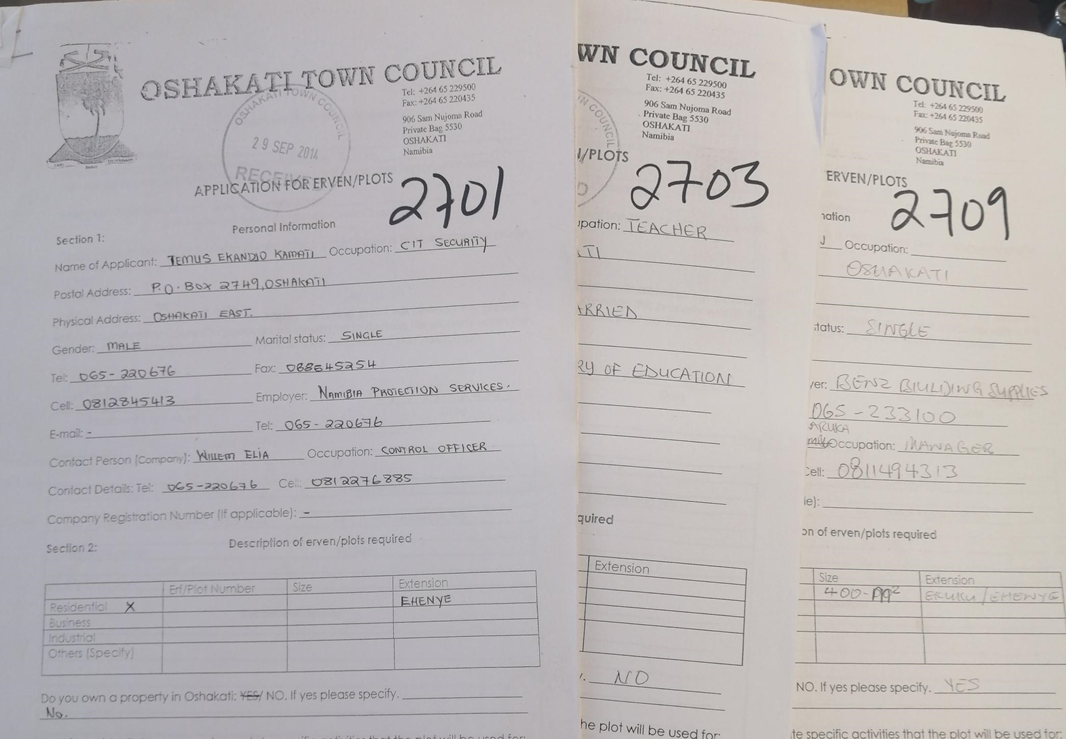 OSHAKATI TOWN COUNCIL
Tel: +264 65 229500
Fax: +264 65 220435
906 Sam Nujoma Road
Private Bag 5530
OSHAKATI
Namibia
OSHAKATI TOWN COUNCIL
29 SEP 2014
RECEIVED
APPLICATION FOR ERVEN/PLOTS
2701
Section 1: Personal Information
Name of Applicant: Occupation: CIT SECURITY
Postal Address: P.O. BOX 2749, OSHAKATI
Physical Address: OSHAKATI EAST.
Gender: MALE Marital status: SINGLE
Tel: 065-220676 Fax: 088645254
Cell: 0812845413 Employer: NAMIBIA PROTECTION SERVICES.
E-mail: - Tel: 065-220676
Contact Person (Company): WILLEM ELIA Occupation: CONTROL OFFICER
Contact Details: Tel: 065-220676 Cell: 0812276885
Company Registration Number (If applicable): -
Section 2: Description of erven/plots required
Erf/Plot Number Size Extension
Residential X EHENYE
Business
Industrial
Others (Specify)
Do you own a property in Oshakati: YES/ NO. If yes please specify.
No.
WN COUNCIL
Tel: +264 65 229500
Fax: +264 65 220435
906 Sam Nujoma Road
Private Bag 5530
OSHAKATI
Namibia
COUNCIL
/PLOTS
2703
upation: TEACHER
TI
ARRIED
RY OF EDUCATION
quired
Extension
NO
he plot will be used for:
OWN COUNCIL
Tel: +264 65 229500
Fax: +264 65 220435
906 Sam Nujoma Road
Private Bag 5530
OSHAKATI
Namibia
ERVEN/PLOTS
2709
nation
Occupation:
OSHAKATI
tatus: SINGLE
yer: BENZ BIULDING SUPPLIES
065-233100
Occupation: MANAGER
Cell: 0811494313
le):
on of erven/plots required
Size Extension
400- ERUKU/EHENYE
NO. If yes please specify. YES
te specific activities that the plot will be used for: